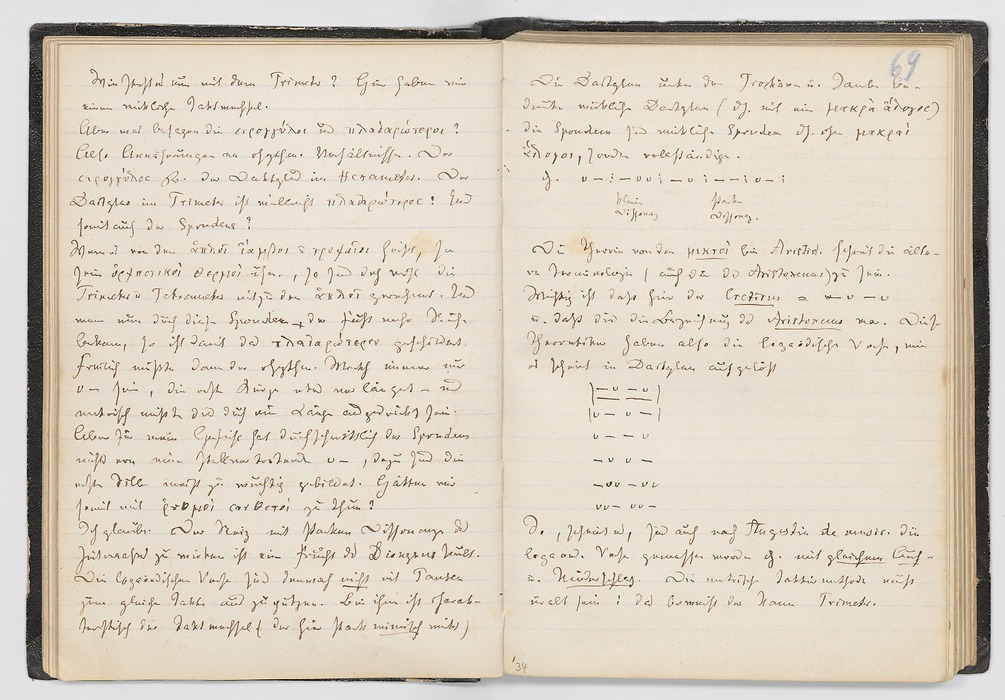 Wie steht es nun mit dem Trimeter? Hier haben wir
einen wirklichen Taktwechsel.
Aber was besagen die στρογγύλοι und πλαδαρώτεροι?
Also Annäherungen an rhythm. Verhältnisse. Der
στρογγύλος zB. der Daktylus im Hexameter. Der
Dactylus im Trimeter ist vielleicht πλαδαρώτερος? Und
somit auch der Spondeus?
Wenn es von den ἁπλοῖ ἴαμβος u τροχαῖος heißt, sie
seien ὀρχηστικοὶ θερμοὶ usw., so sind doch wohl die
Trimeter u Tetrameter mit zu den ἁπλοῖ gerechnet. Und
wenn nun durch diese Spondeen der Fuß mehr Ruhe
bekam, so ist damit das πλαδαρώτερον geschildert.
Freilich müßte dann der rhythm. Werth immer nur
υ – sein, die erste Kürze etwas verlängert – und
metrisch müßte das durch eine Länge ausgedrückt sein.
Aber für mein Gefühl hat durchschnittlich der Spondeus
nicht nur einen Stellvertretende υ –, dazu sind die
ersten Silben meist zu wuchtig gebildet. Hätten wir
somit mit ῥυθμοὶ σύνθετοι zu thun?
Ich glaube: Der Reiz mit starken Dissonanzen des
Zeitmaaßes zu wirken ist ein Frucht des Dionysuskults.
Die logaödischen Verse sind demnach nicht mit Pausen
zum gleichen Takte aufzuputzen. Bei ihnen ist charak-
teristisch der Taktwechsel (der hier stark mimisch wirkt)
64
Die Dactylen unter den Trochäen u. Jamben be-
deuten wirkliche Dactylen (dh. mit ein μακρὰ ἄλογος)
die Spondeen sind wirkliche Spondeen dh. ohne μακραὶ
ἄλογοι, sondern vollständige.
zB. υ – ⁝ – υυ ⁝ – υ ⁝ – – ⁝ υ – ⁝
kleine starke
Dissonanz Dissonanz.
Die Theorie von den μικτοί bei Aristid. scheint die älte-
re Terminologie (auch die des Aristoxenus) zu sein.
Wichtig ist daß hier der Creticus = – υ – υ
u. daß dies die Bezeichnung des Aristoxenus war. Diese
Theoretiker haben also die logaödischen Verse, wie
es scheint in Dactylen aufgelöst
– υ – υ
υ – – υ
υ – – υ
– υ υ –
– υυ – υυ
υυ – υυ –
Die, scheint es, sind auch nach Augustin de music. die
logaoed. Verse gemessen worden zB. mit gleichem Auf-
u. Niederschlag. Die metrische Taktirmethode muß
uralt sein: das beweist der Name Trimeter.
34